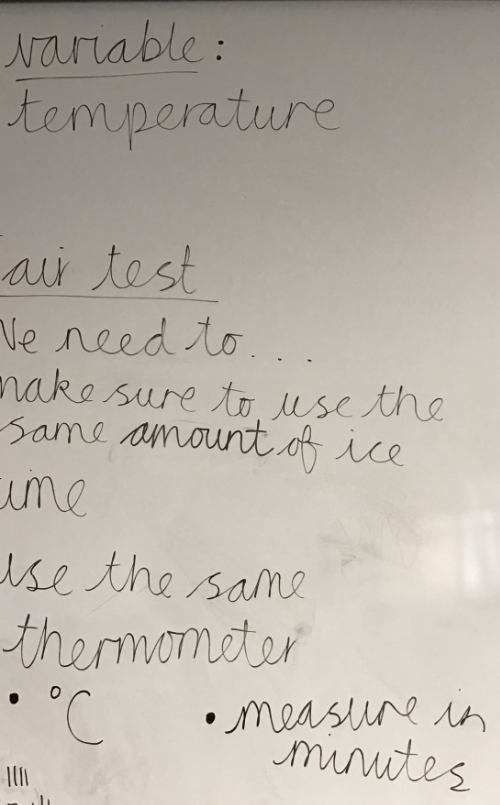 variable:
temperature
air test
We need to...
make sure to use the
same amount of ice
ime
use the same
thermometer
• °C • measure in
minutes